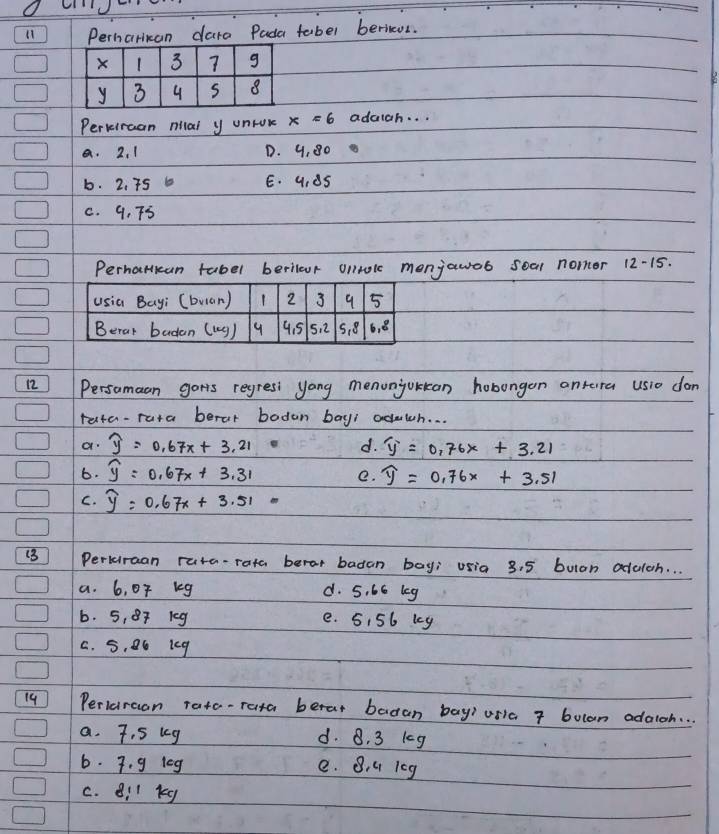 11 Perhatikan data Pada tabel berikut.
x 1 3 7 9
y 3 4 5 8
Perkiraan nilai y untuk x = 6 adalah...
a. 2,1 D. 4,80
b. 2,75 E. 4,85
c. 4,75
Perhatikan tabel berikut untuk menjawab soal nomor 12-15.
Usia Bayi (bulan) 1 2 3 4 5
Berat badan (kg) 4 4,5 5,2 5,8 6,8
12 Persamaan garis regresi yang menunjukkan hubungan antara usia dan
rata-rata berat badan bayi adalah...
a. ŷ = 0,67x + 3,21 d. ŷ = 0,76x + 3,21
b. ŷ = 0,67x + 3,31 e. ŷ = 0,76x + 3,51
c. ŷ = 0,67x + 3.51
13 Perkiraan rata-rata berat badan bayi usia 3,5 bulan adalah...
a. 6,07 kg d. 5,66 kg
b. 5,87 kg e. 5,56 kg
c. 5,86 kg
14 Perkiraan rata-rata berat badan bayi usia 7 bulan adalah...
a. 7,5 kg d. 8,3 kg
b. 7,9 kg e. 8,4 kg
c. 8,1 kg